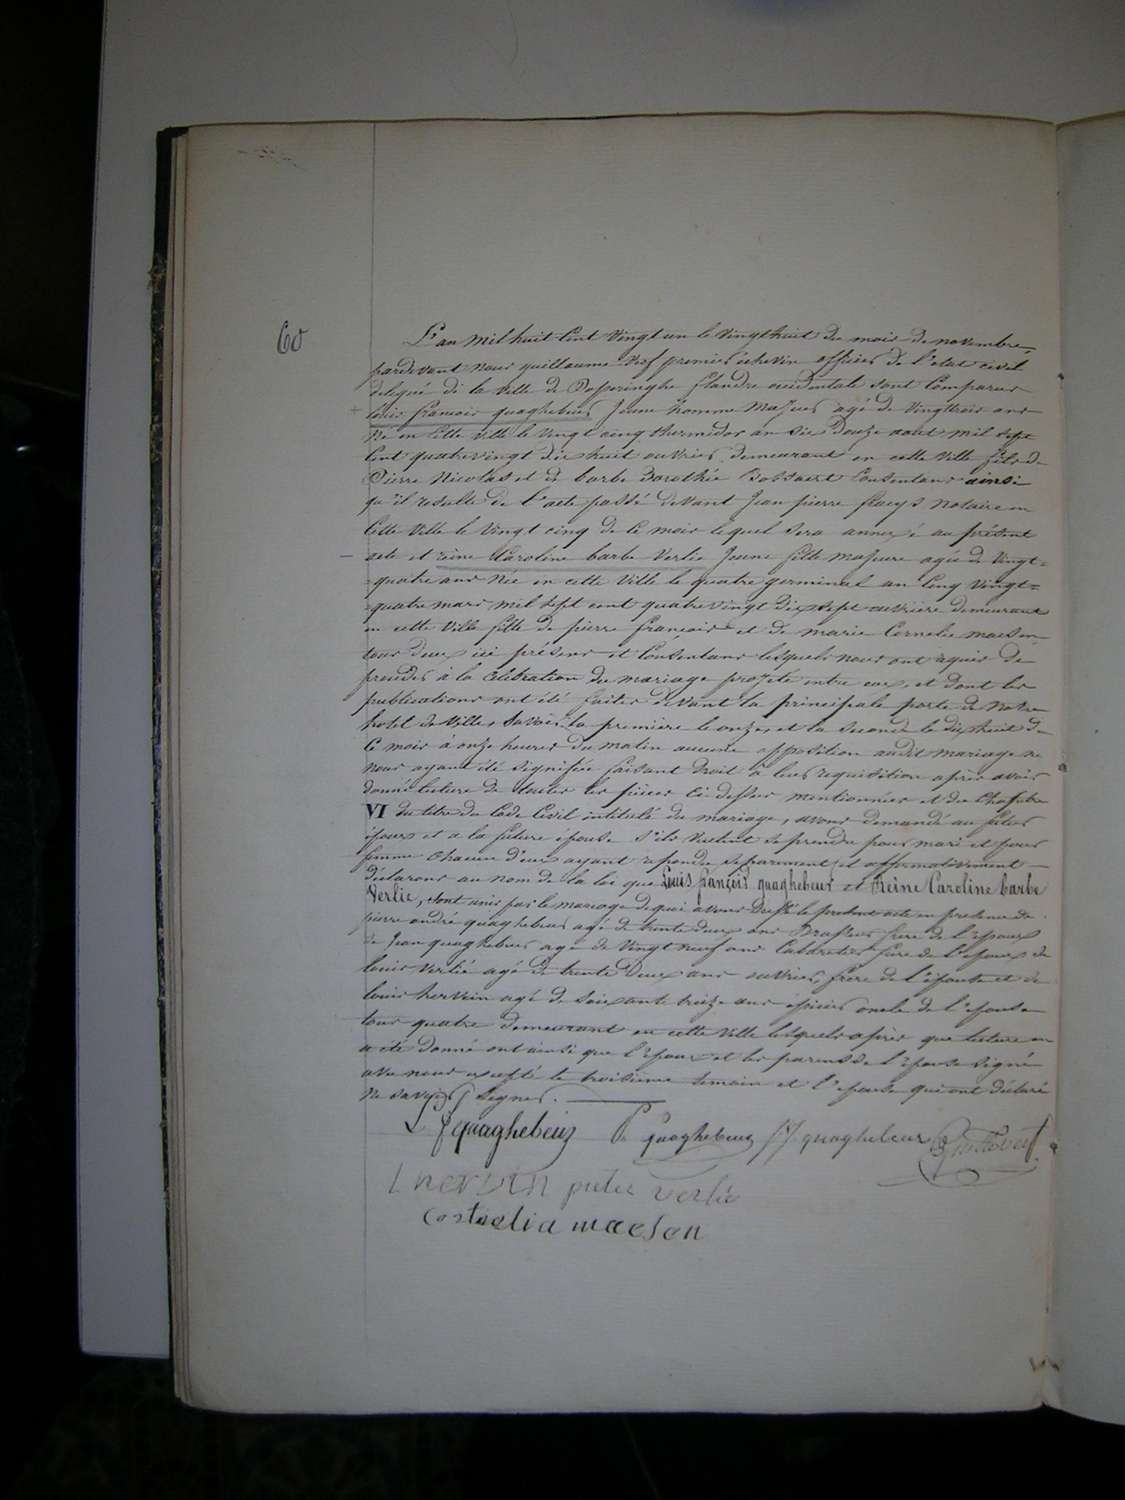 60
L'an mil huit cent vingt un le vingt huit du mois de novembre
pardevant nous guillaume premier échevin officier de l'état civil
délégué de la ville de Poperinghe flandre occidentale sont comparus
louis francois quaghebeur jeune homme majeur agé de vingt trois ans
né en cette ville le vingt cinq thermidor an six douze aout mil sept
cent quatre vingt dix huit ouvrier demeurant en cette ville fils de
Pierre Nicolas et de barbe Dorothée consentans ainsi
qu'il resulte de l'acte passé devant Jean pierre notaire en
cette ville le vingt cinq de ce mois lequel sera annexé au présent
acte et reine Caroline barbe Verlie jeune fille majeure agée de vingt=
=quatre ans née en cette ville le quatre germinal an cinq vingt=
=quatre mars mil sept cent quatre vingt dix sept ouvrière demeurant
en cette ville fille de pierre françois et de marie Cornelie maeson
tous deux ici présens et consentans lesquels nous ont requis de
procéder à la célébration du mariage projeté entre eux, et dont les
publications ont été faites devant la principale porte de notre
hotel de ville, savoir la première le onze, et la seconde le dix huit de
ce mois à onze heures du matin aucune opposition audit mariage ne
nous ayant été signifiée faisant droit à leur requisition après avoir
donné lecture de toutes les pièces ci dessus mentionnées et du chapitre
VI du titre du Code Civil intitulé du mariage, avons demandé au futur
époux et a la future épouse s'ils veulent se prendre pour mari et pour
femme chacun d'eux ayant repondu separement et affirmativement
déclarons au nom de la loi que Louis françois quaghebeur et Reine Caroline barbe
Verlie, sont unis par le mariage de quoi avons dressé le présent acte en presence de
pierre andré quaghebeur agé de trente deux ans brasseur frère de l'époux
de Jean quaghebeur agé de vingt neuf ans frère de l'époux de
louis verlié agé de trente deux ans ouvrier, frère de l'épouse et de
louis hervein agé de soixante treize ans épicier oncle de l'épouse
tous quatre demeurant en cette ville lesquels après que lecture en
a été donné ont ainsi que l'époux et les parens de l'épouse signé
avec nous excepté le troisième temoin et l'épouse qui ont déclaré
ne savoir signer.
L f quaghebeur P. quaghebeur J J quaghebeur
l hervin pieter verlie
cornelia maeson